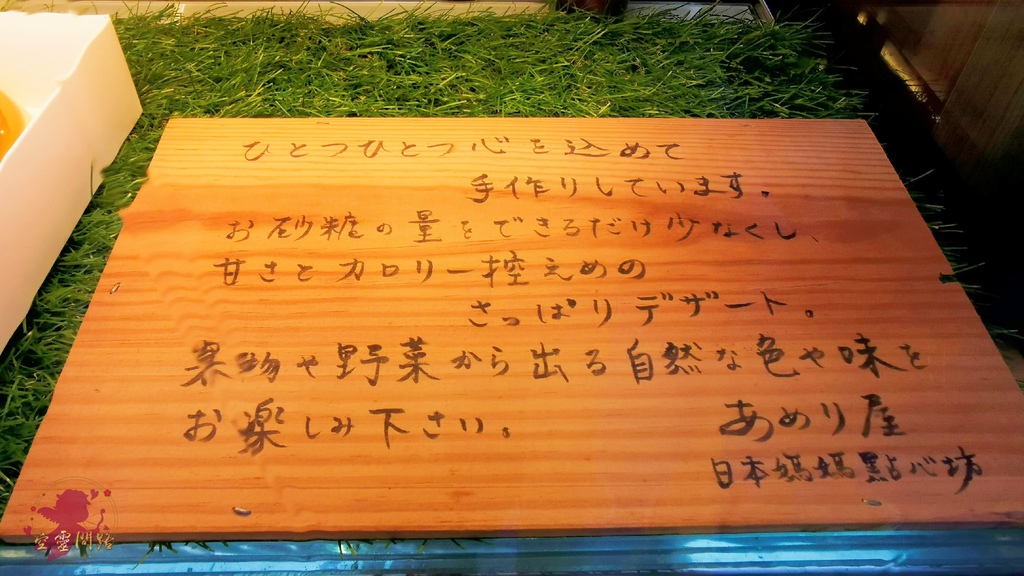 ひとつひとつ心を込めて
手作りしています。
お砂糖の量をできるだけ少なくし、
甘さとカロリー控えめの
さっぱりデザート。
果物や野菜から出る自然な色や味を
お楽しみ下さい。
あめり屋
日本媽媽點心坊